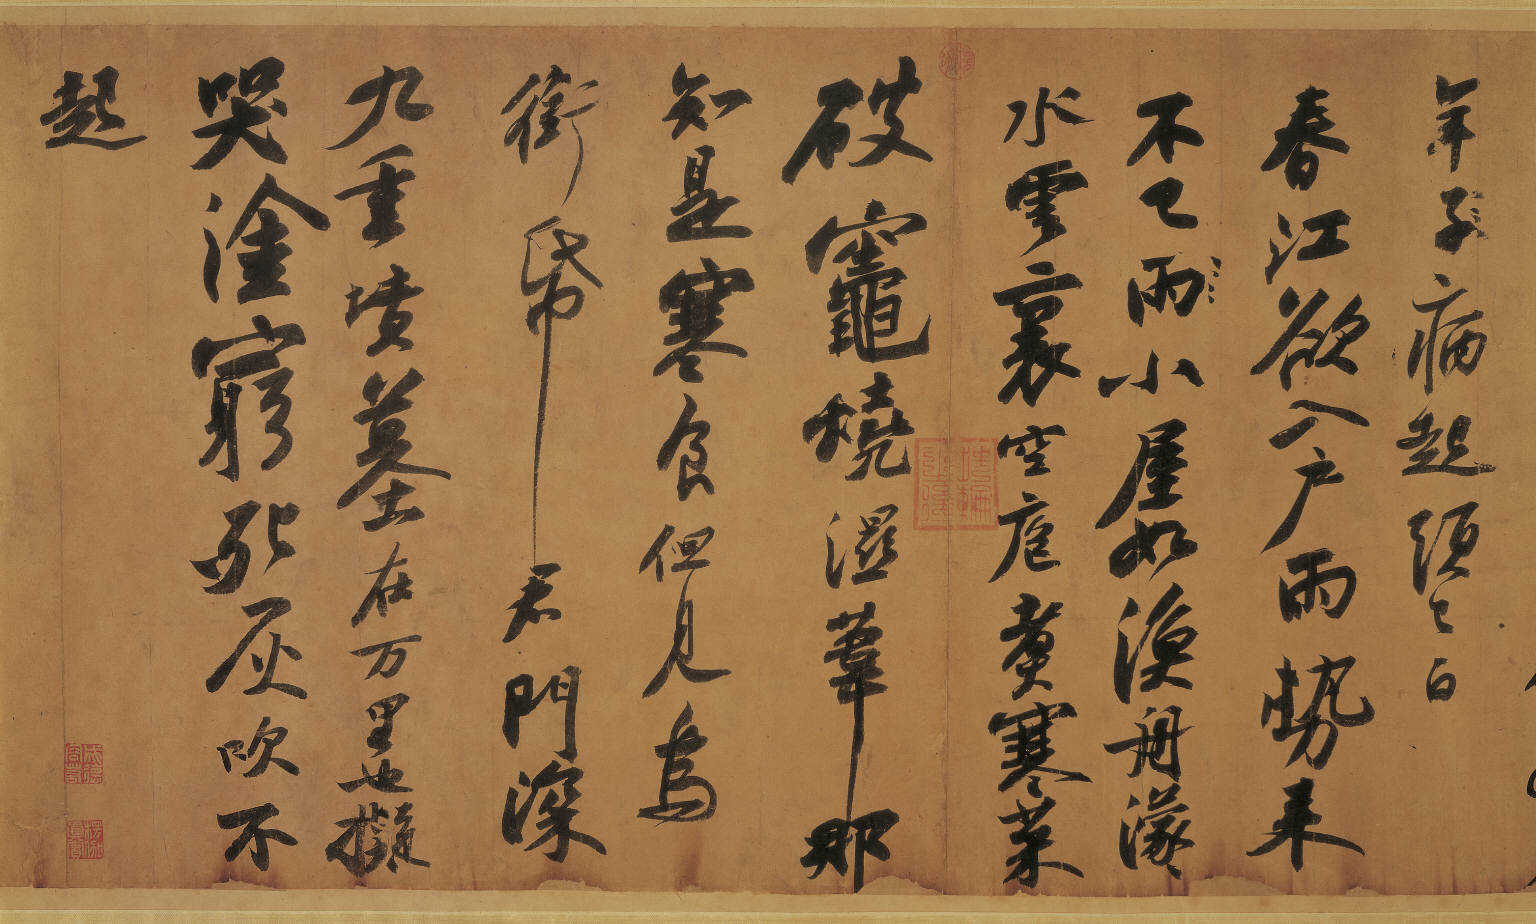 年子病起頭已白
春江欲入户雨勢来
不已雨小屋如漁舟濛〻
水雲裏空庖煮寒菜
破竈燒濕葦那
知是寒食但見烏
銜帋君門深
九重墳墓在万里也擬
哭塗窮死灰吹不
起